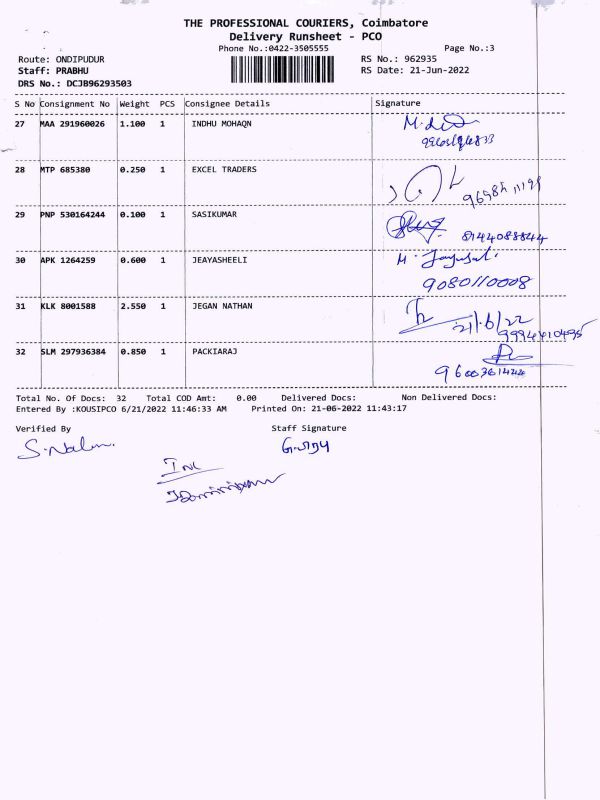 THE PROFESSIONAL COURIERS, Coimbatore
Delivery Runsheet - PCO
Phone No.:0422-3505555 Page No.:3
Route: ONDIPUDUR RS No.: 962935
Staff: PRABHU RS Date: 21-Jun-2022
DRS No.: DCJB96293503
S No Consignment No Weight PCS Consignee Details Signature
27 MAA 291960026 1.100 1 INDHU MOHAQN
28 MTP 685380 0.250 1 EXCEL TRADERS
29 PNP 530164244 0.100 1 SASIKUMAR
8144088844
30 APK 1264259 0.600 1 JEAYASHEELI
9080110008
31 KLK 8001588 2.550 1 JEGAN NATHAN
21/6/22
9994410495
32 SLM 297936384 0.850 1 PACKIARAJ
Total No. Of Docs: 32 Total COD Amt: 0.00 Delivered Docs: Non Delivered Docs:
Entered By :KOUSIPCO 6/21/2022 11:46:33 AM Printed On: 21-06-2022 11:43:17
Verified By Staff Signature